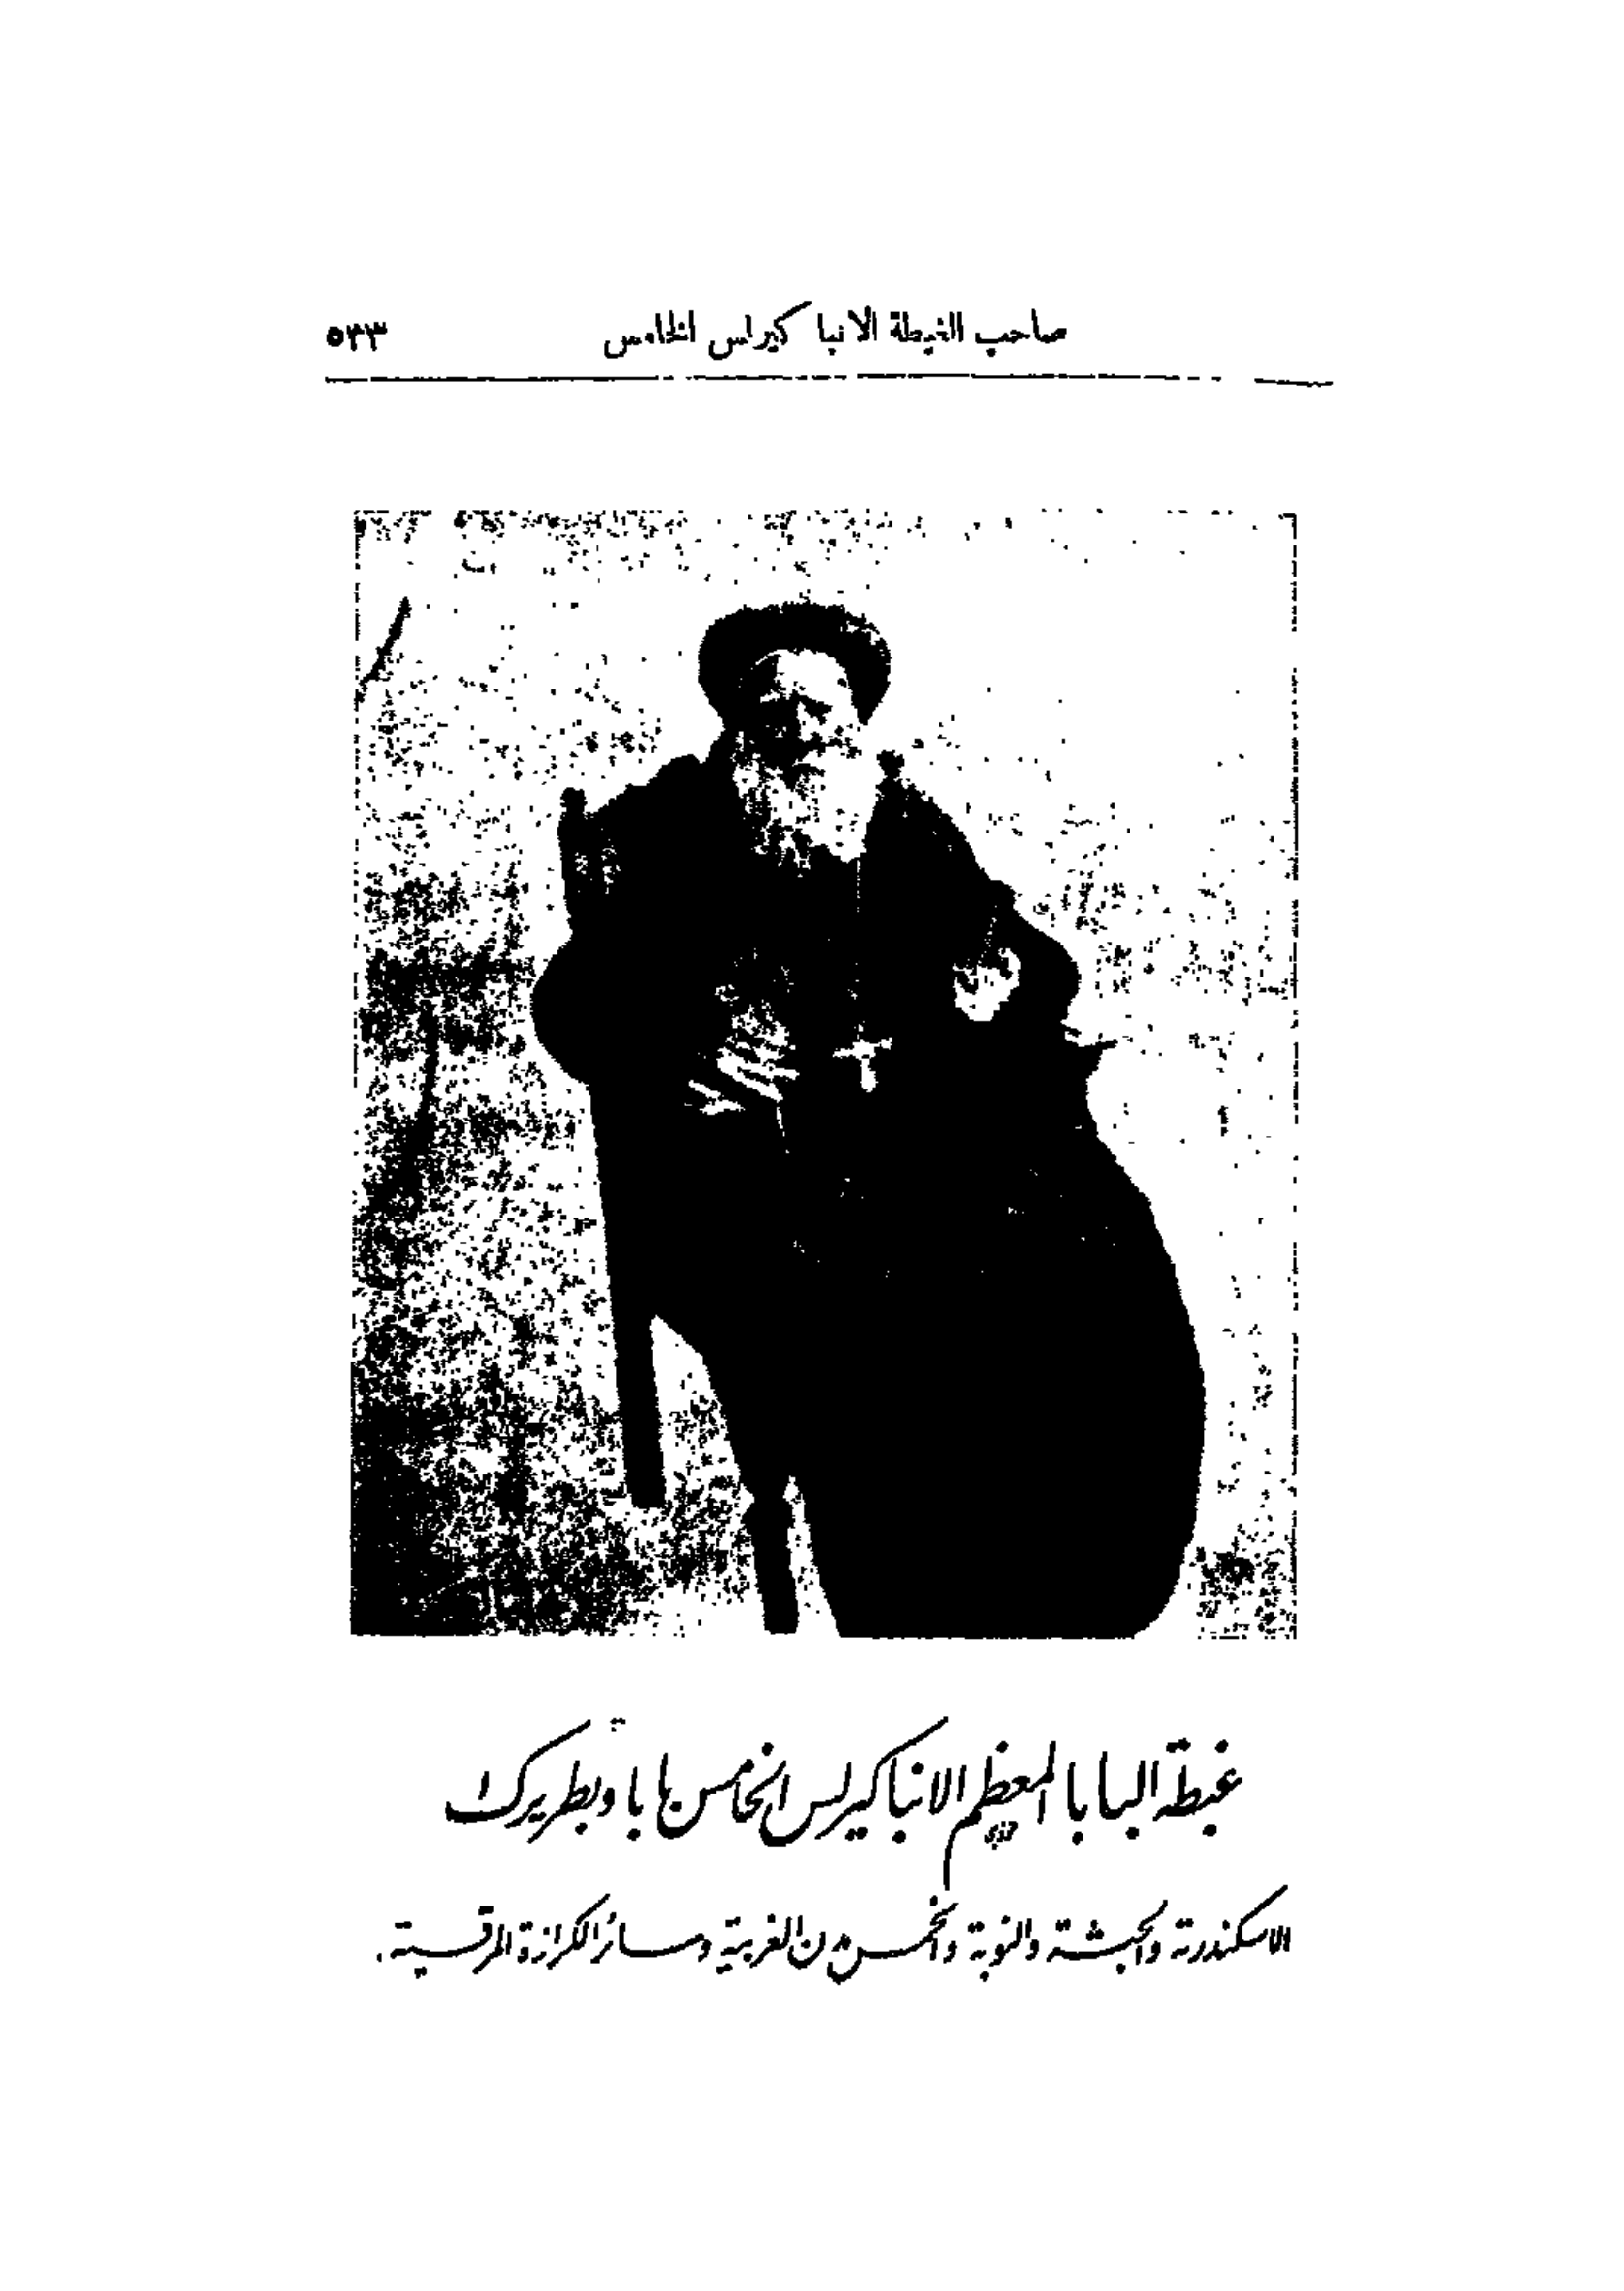 صاحب الغبطة الانبا كيرلس الخامس ٥٣٣
غبطة البابا المعظم الانبا كيرلس الخامس بابا وبطريرك
الاسكندرية والحبشة والنوبة والخمس مدن الغربية وسائر الكرازة المرقسية .